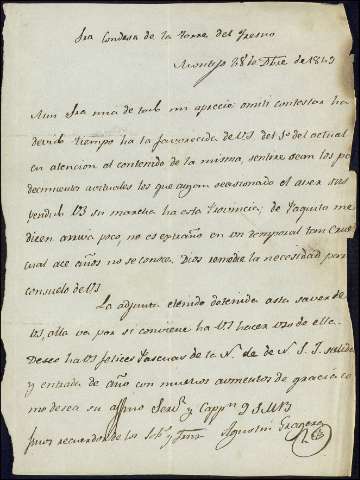 Sra Condesa de la Torre del Fresno
Montijo 28 de Dbre de 1849
Muy Sra mia de todo mi aprecio omiti contestar ha
devido tiempo ha la favorecida de VS del 5º del actual
en atencion al contenido de la misma, sentire sean los pa
decimientos actuales los que aygan ocasionado el aver sus
pendido VS su marcha ha esta Provincia; de Paquita me
dicen arriva poco, no es extraño en un temporal tan crue
cual ace años no se conoce. Dios remedie la necesidad para
consuelo de VS
La adjunta e tenido detenida asta saver de
VS, alla va por si conviene ha VS hacer uso de ella.
Deseo ha VS felices Pascuas de la N. de N. S. J. salida
y entrada de año con muchos aumentos de gracia co
mo desea su affmo Serr. y Cappn Q S M B
finos recuerdos de los Sobs y Agustin Gragera